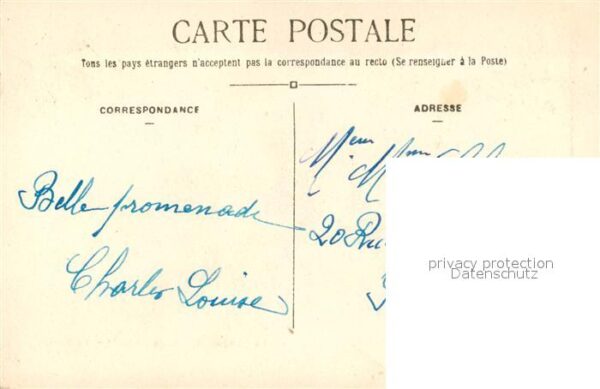 CARTE POSTALE
Tous les pays étrangers n'acceptent pas la correspondance au recto (Se renseigner à la Poste)
CORRESPONDANCE
ADRESSE
Belle promenade
Charles Louise
20 Rue
privacy protection
Datenschutz